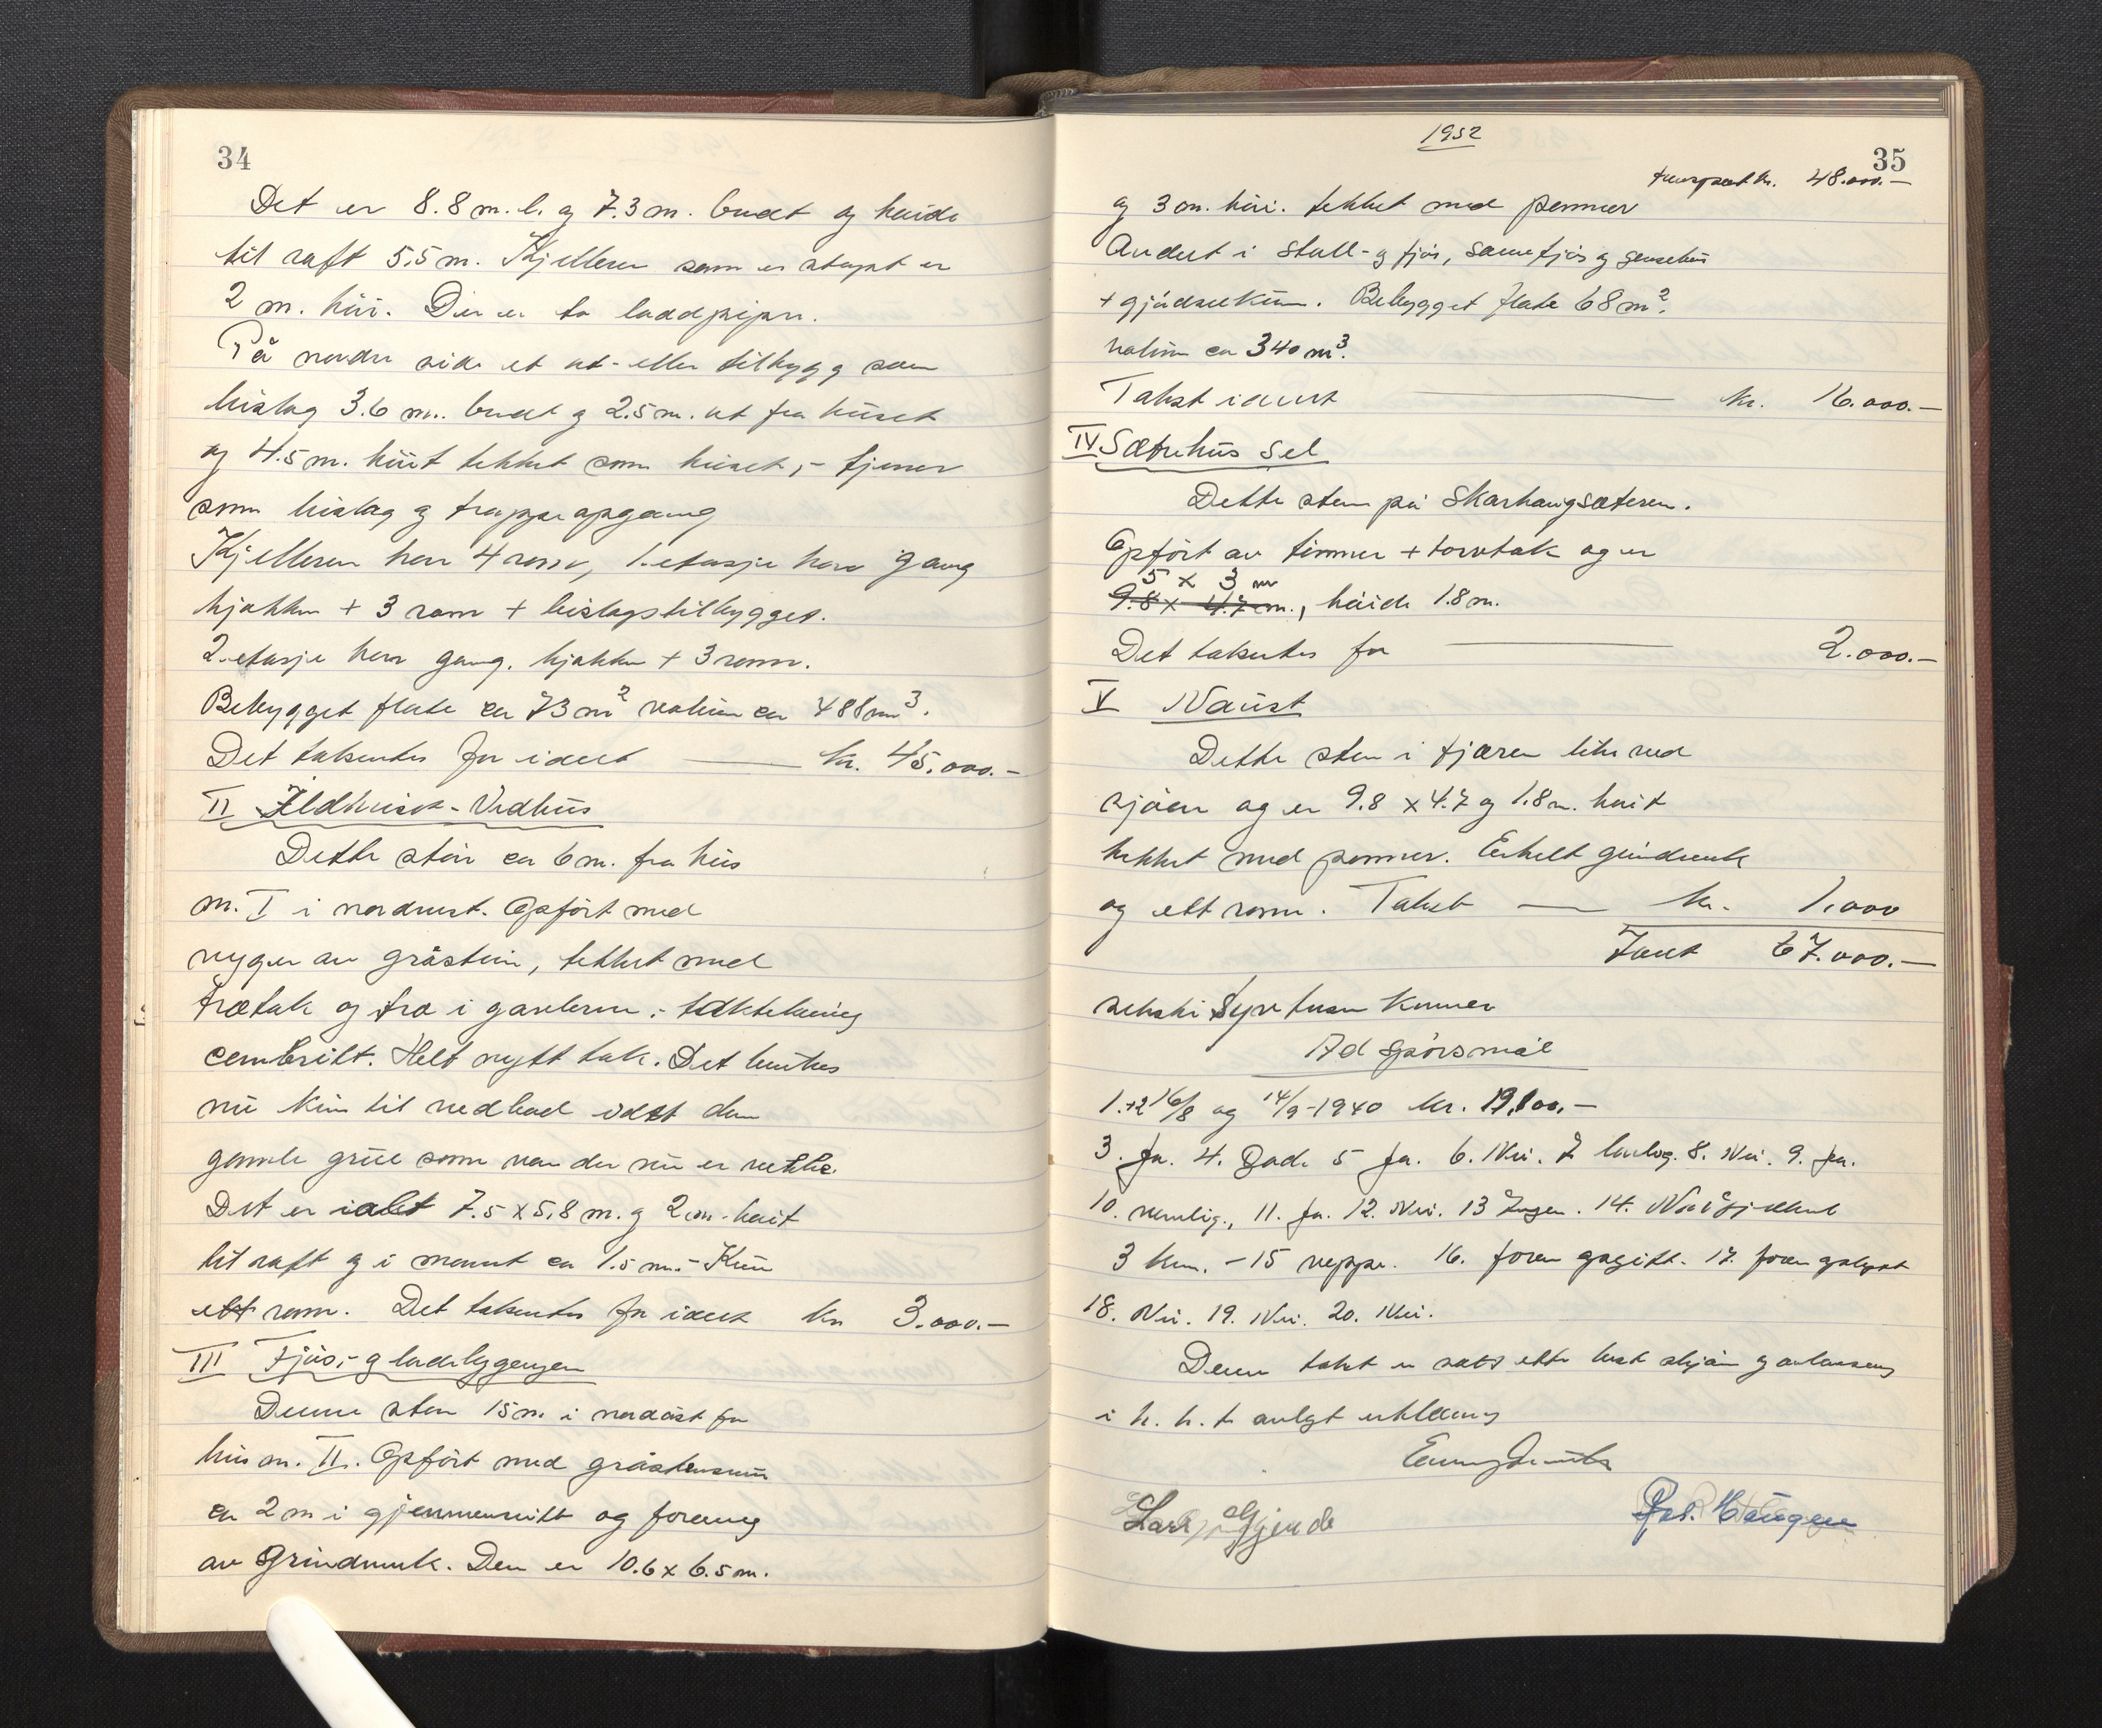 34
Det er 8.8 m. l. og 7.3 m. bredt og høide
til raft 5,5 m. Kjelleren som er støypt er
2 m. høi. Der er to loddpiper.
På nordre side et ut- eller tilbygg som
bislag 3.6 m. bredt og 2.5 m. ut fra huset
og 4.5 m. høit tekket som huset, - tjener
som bislag og trappeopgang
Kjelleren har 4 rom, 1. etasje har gang
kjøkken + 3 rom + bislagstilbygget.
2. etasje har gang, kjøkken + 3 rom.
Bebygget flate ca 73 m² volum ca 488 m³.
Det takseres for i alt kr. 45.000.-
II Ildhus - Vedhus
Dette står ca 6 m. fra hus
nr. I i nordvest. Opført med
vegger av gråstein, tekket med
tretak og tre i gavlerne, - taktekning
cembritt. Helt nytt tak. Det brukes
nu kun til vedbod idet den
gamle grue som var der nu er vekke.
Det er i alt 7.5 x 5,8 m. og 2 m. høit
til raft og i mønet ca 1.5 m. - Kun
ett rom. Det takseres for i alt kr 3.000.-
III Fjøs, - og ladebyggengen
Denne står 15 m. i nordøst for
hus nr. II. Opført med gråstensmur
ca 2 m i gjennemsnitt og forøvrig
av grindverk. Den er 10.6 x 6.5 m.
1952
35
Transport kr. 48.000.-
og 3 m. høi. tekket med panner
Indredt i stall- og fjøs, sauefjøs og grisehus
+ gjødselkum. Bebygget flate 68 m².
volum ca 340 m³.
Takst i alt kr. 16.000.-
IV Sæterhus Sel
Dette står på Skarhaugsæteren.
Opført av timmer + torvtak og er
5 x 3 m
9.8 x 4.7 m., høide 1.8 m.
Det takseres for 2.000.-
V Naust
Dette står i fjæren like ved
sjøen og er 9.8 x 4.7 og 1.8 m. høit
tekket med panner. Enkelt grindverk
og ett rom. Takst kr. 1.000
I alt 67.000.-
Ad spørsmål
1.+2 16/8 og 14/9-1940 kr. 19.100.-
3. Ja. 4. Gode 5 Ja. 6. Nei. 7 lovlig. 8. Nei. 9. Ja.
10. vanlig., 11. Ja. 12. Nei. 13 Ingen. 14.
3 km. - 15 neppe. 16. foran opgitt. 17. foran oplyst
18. Nei. 19. Nei. 20. Nei.
Denne takst er satt etter beste skjøn og avlevering
i h. h. t. avlagt erklæring
Lars Gjerde
Jos. Haugen